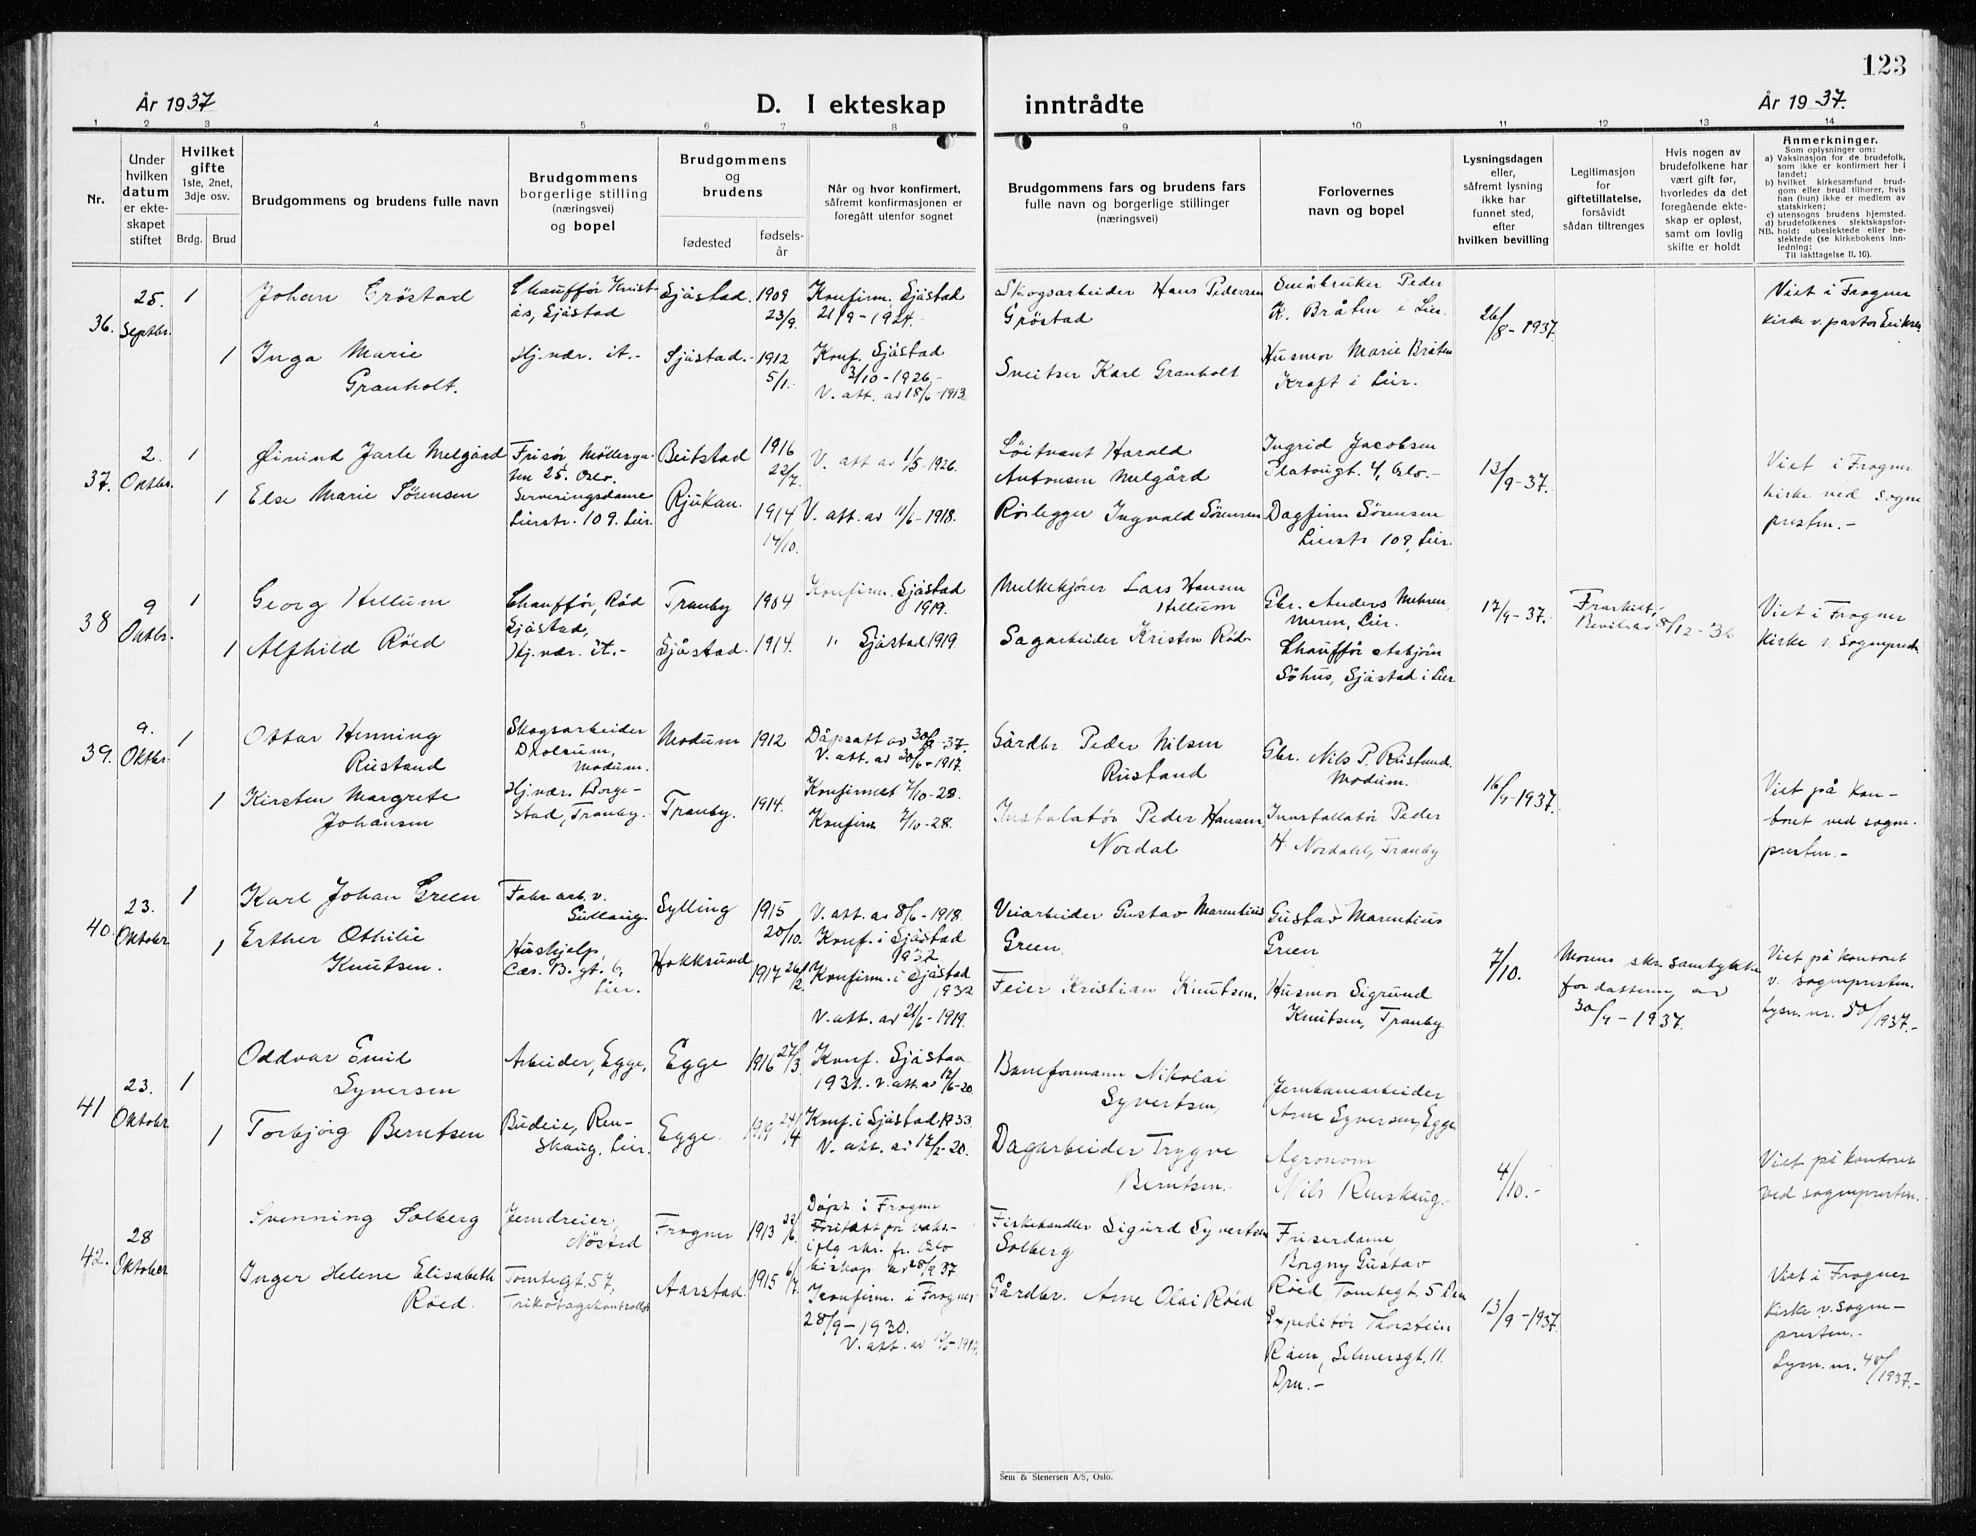 123
År 1937
D. I ekteskap inntrådte
År 1937.
1 2 3 4 5 6 7 8 9 10 11 12 13 14
Nr.
Under
hvilken
datum
er ekte-
skapet
stiftet
Hvilket
gifte
1ste, 2net,
3dje osv.
Brdg. Brud
Brudgommens og brudens fulle navn
Brudgommens
borgerlige stilling
(næringsvei)
og bopel
Brudgommens
og
brudens
fødested
fødsels-
år
Når og hvor konfirmert,
såfremt konfirmasjonen er
foregått utenfor sognet
Brudgommens fars og brudens fars
fulle navn og borgerlige stillinger
(næringsvei)
Forlovernes
navn og bopel
Lysningsdagen
eller,
såfremt lysning
ikke har
funnet sted,
efter
hvilken bevilling
Legitimasjon
for
giftetillatelse,
forsåvidt
sådan tiltrenges
Hvis nogen av
brudefolkene har
vært gift før,
hvorledes da det
foregående ekte-
skap er opløst,
samt om lovlig
skifte er holdt
Anmerkninger.
Som oplysninger om:
a) Vaksinasjon for de brudefolk,
som ikke er konfirmert her i
landet;
b) hvilket kirkesamfund brud-
gom eller brud tilhører, hvis
han (hun) ikke er medlem av
statskirken;
c) utensogns brudens hjemsted.
d) brudefolkenes slektskapsfor-
NB. hold: ubeslektede eller be-
slektede (se kirkebokens inn-
ledning:
Til iakttagelse II. 10).
36.
25.
Septbr.
1
Johan Gröstad
Chauffør Kvist-
ås, Sjåstad
Sjåstad.
1909
23/9.
Konfirm. Sjåstad
21/9 - 1924.
Skogsarbeider Hans Pedersen
Gröstad
Småbruker Peder
K. Bråten i Lier.
26/8 - 1937.
Viet i Frogner
kirke v. pastor Eriksen
1
Inga Marie
Granholt.
Hj.vær. it.-
Sjåstad.-
1912
5/1.
Konf. Sjåstad
3/10 - 1926.-
V. att. av 18/6 - 1913
Sveitser Karl Granholt
Husmor Marie Bråten
Kraft i Lier.
37.
2.
Oktbr.
1
Øivind Jarle Melgård
Frisør Møllerga-
ten 25. Oslo.
Beitstad
1916
22/7.
V. att av 1/5 - 1926.
Løitnant Harald
Antonsen Melgård
Ingrid Jacobsen
Platougt. 4, Oslo.-
13/9-37.
Viet i Frogner
kirke ved sogne
presten.-
1
Else Marie Sörensen
Serveringsdame
Lierstr. 109. Lier.
Rjukan.
1914
14/10.
V. att. av 11/6 - 1918.
Rørlegger Ingvald Sörensen
Dagfinn Sörensen
Lierstr 109, Lier.
38
9
Oktbr.
1
Georg Hellum
Chauffør, Röd
Sjåstad,
Tranby
1904
Konfirm. Sjåstad
1919.
Melkekjører Lars Hansen
Hellum
Gbr. Anders Mehren,
Meren, Lier.
17/9-37.
Viet i Frogner
Kirke v. Sogneprest.
1
Alfhild Röed
Hj.vær. it.-
Sjåstad.
1914.
" Sjåstad 1919
Sagarbeider Kristen Röd
Chauffør Asbjörn
Söhus, Sjåstad i Lier
39.
9.
Oktbr.
1
Ottar Henning
Rustand
Skogsarbeider
Drolsum,
Modum.
Modum
1912
Dåpsatt av 30/8-37.
V. att. av 30/6-1917.
Gårdbr. Peder Nilsen
Rustand
Gbr. Nils P. Rustand.
Modum.
16/9-1937.
Viet på kon-
toret ved sogne.
presten.-
1
Kirsten Margrete
Johansen
Hj.vær. Borge-
stad, Tranby.
Tranby.
1914.
Konfirmert 7/10-28.
Konfirm 7/10-28.
Instalatør Peder Hansen
Nordal
Innstallatør Peder
H. Nordahl, Tranby
40.
23.
Oktober
1
Karl Johan Green
Fabr. arb. v.
Gullaug.
Sylling
1915
20/10.
V. att. av 8/6-1918.
Konf. i Sjåstad
1932
Veiarbeider Gustav Marentius
Green.
Gustav Marentius
Green
7/10.
Morens skr. samtykke
for datteren av
30/9 - 1937.
Viet på kontoret
v. sognepresten.
Lysn. nr. 50/1937.-
1
Esther Othilie
Knutsen.
Hushjelp,
Cæs. B. gt. 6,
Lier.
Hokksund
1917 26/2.
Konfirm. i Sjåstad
1932
V. att. av 21/6-1919.
Feier Kristian Knutsen.
Husmor Sigrund
Knutsen, Tranby.
41
23.
Oktober
1
Oddvar Emil
Syversen
Arbeider, Egge,
Egge
1916 27/3
Konf. Sjåstad
1931. v. att av 12/6-20
Baneformann Nikolai
Syvertsen,
Jernbanearbeider
Arne Syversen, Egge
4/10.-
Viet på kontoret
ved sognepresten.
1
Torbjörg Berntsen
Budeie, Ren-
skaug, Lier.
Egge.
1919
Konf. i Sjåstad 1933
V. att. av 12/2-20.
Dagarbeider Trygve
Berntsen.
Agronom
Nils Renskaug.
42.
28
Oktober
Svenning Solberg
Jerndreier,
Nøsted
Frogner
1913
Döpt i Frogner
Fritatt for vaks-
iflg skr. fr. Oslo
biskop av 28/9 37
Fiskehandler Sigurd Syvertsen
Solberg
Friserdame
Borgny Gustav
Röed Tomtegt. 5 Drm
13/9-1937.
Viet i Frogner
Kirke v. sogne-
presten.-
Lysn. nr. 48/1937.-
Inger Helene Elisabeth
Röed.
Tomtegt. 57,
Trikotasjekontrollør
Aarstad.
1915 6/7.
Konfirm. i Frogner
28/9 - 1930.
Gårdbr. Arne Olai Röed
Expeditør Thorstein
Röen, Selmersgt. 11.
Drm.-
Sem & Stenersen A/S, Oslo.